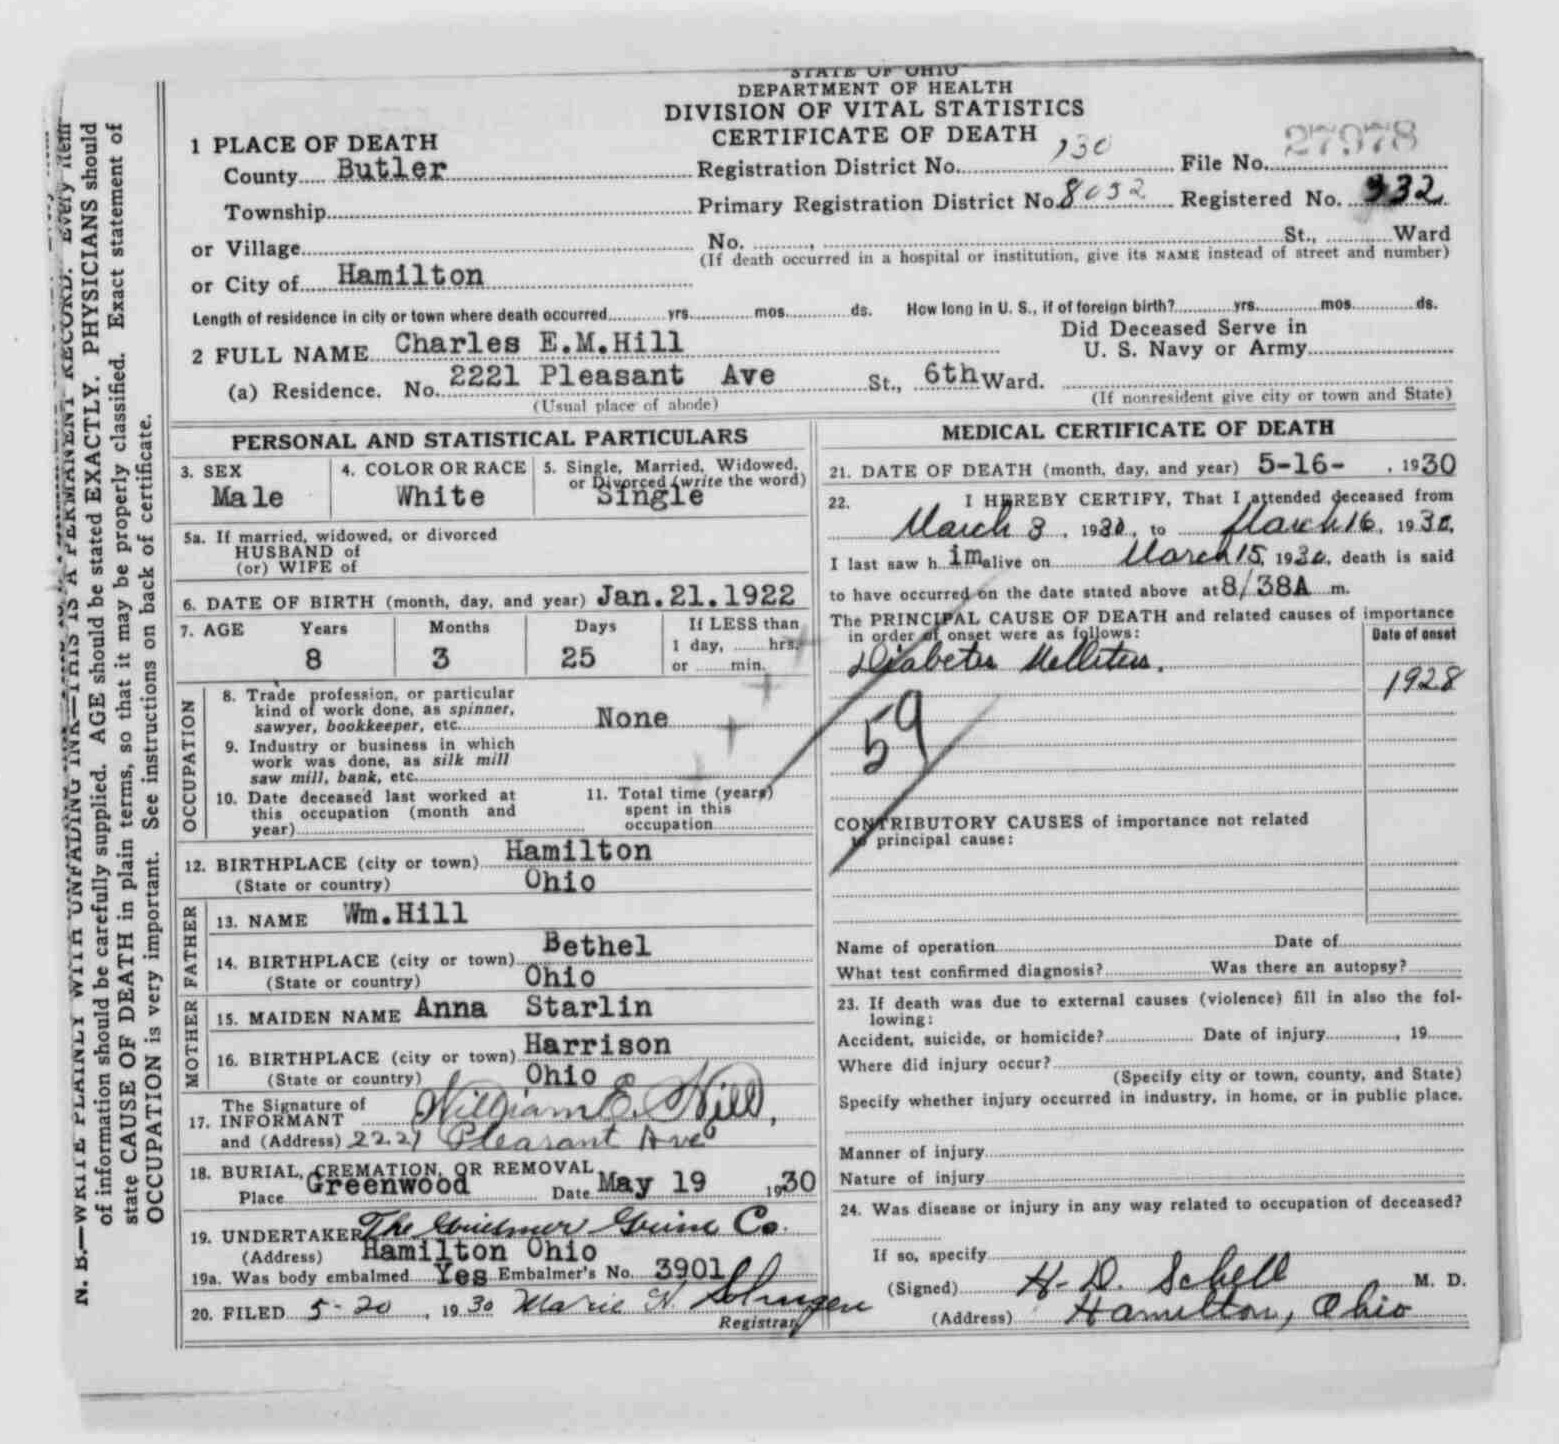 STATE OF OHIO
DEPARTMENT OF HEALTH
DIVISION OF VITAL STATISTICS
CERTIFICATE OF DEATH
1 PLACE OF DEATH
County Butler Registration District No. 130 File No. 27978
Township Primary Registration District No. 8052 Registered No. 332
or Village No. , St., Ward
(If death occurred in a hospital or institution, give its NAME instead of street and number)
or City of Hamilton
Length of residence in city or town where death occurred yrs. mos. ds. How long in U. S., if of foreign birth? yrs. mos. ds.
2 FULL NAME Charles E.M.Hill Did Deceased Serve in
U. S. Navy or Army
(a) Residence. No. 2221 Pleasant Ave St., 6th Ward.
(Usual place of abode) (If nonresident give city or town and State)
PERSONAL AND STATISTICAL PARTICULARS
3. SEX 4. COLOR OR RACE 5. Single, Married, Widowed,
or Divorced (write the word)
Male White Single
5a. If married, widowed, or divorced
HUSBAND of
(or) WIFE of
6. DATE OF BIRTH (month, day, and year) Jan.21.1922
7. AGE Years Months Days If LESS than
1 day, hrs.
or min.
8 3 25
OCCUPATION
8. Trade profession, or particular
kind of work done, as spinner,
sawyer, bookkeeper, etc. None
9. Industry or business in which
work was done, as silk mill
saw mill, bank, etc.
10. Date deceased last worked at
this occupation (month and
year)
11. Total time (years)
spent in this
occupation
12. BIRTHPLACE (city or town) Hamilton
(State or country) Ohio
FATHER
13. NAME Wm.Hill
14. BIRTHPLACE (city or town) Bethel
(State or country) Ohio
MOTHER
15. MAIDEN NAME Anna Starlin
16. BIRTHPLACE (city or town) Harrison
(State or country) Ohio
17. The Signature of
INFORMANT William E. Hill,
and (Address) 2221 Pleasant Ave
18. BURIAL, CREMATION, OR REMOVAL
Place Greenwood Date May 19 1930
19. UNDERTAKER The Co.
(Address) Hamilton Ohio
19a. Was body embalmed Yes Embalmer's No. 3901
20. FILED 5-20, 1930 Marie
Registrar
MEDICAL CERTIFICATE OF DEATH
21. DATE OF DEATH (month, day, and year) 5-16- , 1930
22. I HEREBY CERTIFY, That I attended deceased from
March 3, 1930, to March 16, 1930,
I last saw h im alive on March 15, 1930, death is said
to have occurred on the date stated above at 8/38A m.
The PRINCIPAL CAUSE OF DEATH and related causes of importance
in order of onset were as follows: Date of onset
Diabetes Mellitus. 1928
59
CONTRIBUTORY CAUSES of importance not related
to principal cause:
Name of operation Date of
What test confirmed diagnosis? Was there an autopsy?
23. If death was due to external causes (violence) fill in also the fol-
lowing:
Accident, suicide, or homicide? Date of injury , 19
Where did injury occur?
(Specify city or town, county, and State)
Specify whether injury occurred in industry, in home, or in public place.
Manner of injury
Nature of injury
24. Was disease or injury in any way related to occupation of deceased?
If so, specify
(Signed) H. D. Schell M. D.
(Address) Hamilton, Ohio
N. B.—WRITE PLAINLY WITH UNFADING INK—THIS IS A PERMANENT RECORD. Every item
of information should be carefully supplied. AGE should be stated EXACTLY. PHYSICIANS should
state CAUSE OF DEATH in plain terms, so that it may be properly classified. Exact statement of
OCCUPATION is very important. See instructions on back of certificate.